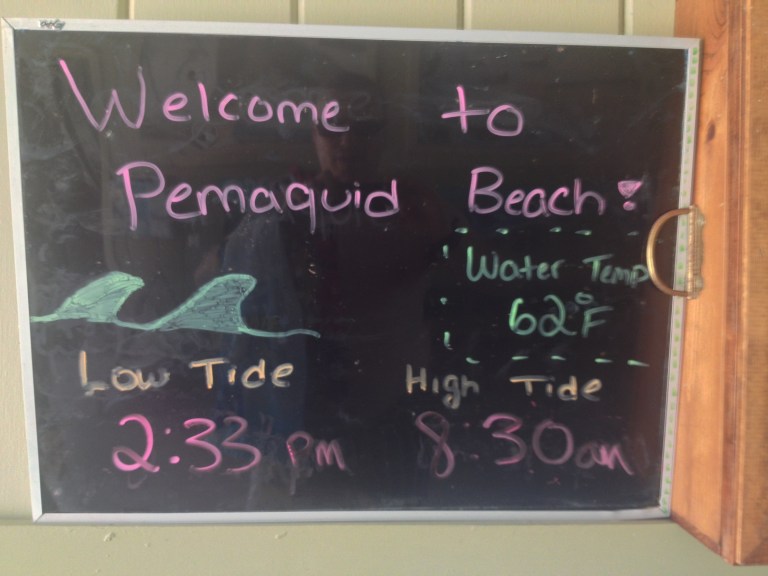 Welcome to
Pemaquid Beach!
Water Temp
62°F
Low Tide
2:33 pm
High Tide
8:30am